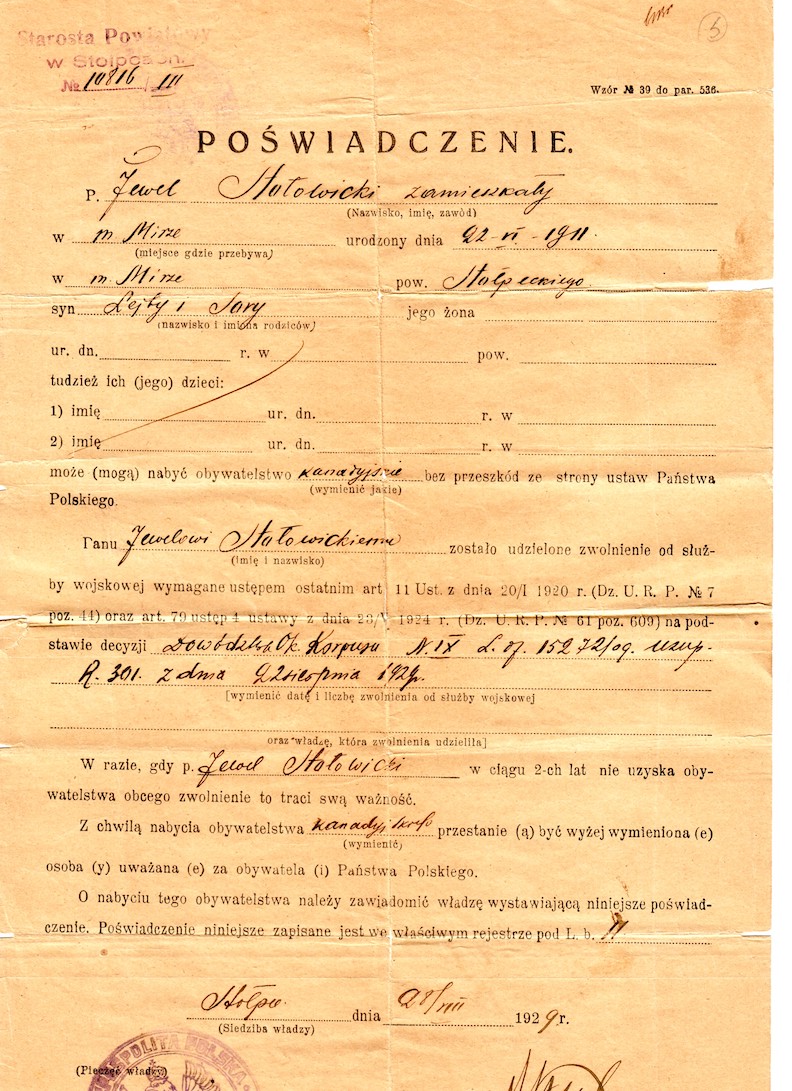 Starosta Powiatowy
w Stołpcach.
№ 10816/III
5
Wzór № 39 do par. 536.
POŚWIADCZENIE.
P. Jewel Stołowicki zamieszkały
(Nazwisko, imię, zawód)
w m. Mirze urodzony dnia 22-VI-1911.
(miejsce gdzie przebywa)
w m. Mirze pow. Stołpeckiego
syn Lejby i Sory jego żona
(nazwisko i imiona rodziców)
ur. dn. r. w pow.
tudzież ich (jego) dzieci:
1) imię ur. dn. r. w
2) imię ur. dn. r. w
może (mogą) nabyć obywatelstwo kanadyjskie bez przeszkód ze strony ustaw Państwa
(wymienić jakie)
Polskiego.
Panu Jewelowi Stołowickiemu zostało udzielone zwolnienie od służ-
(imię i nazwisko)
by wojskowej wymagane ustępem ostatnim art 11 Ust. z dnia 20/I 1920 r. (Dz. U. R. P. № 7
poz. 44) oraz art. 79 ustęp 4 ustawy z dnia 23/V 1924 r. (Dz. U. R. P. № 61 poz. 609) na pod-
stawie decyzji Dowództwa Ok. Korpusu N. IX L. 15272/og. uzup.
R. 301. z dnia 22 sierpnia 1929 r.
[wymienić datę i liczbę zwolnienia od służby wojskowej
oraz władzę, która zwolnienia udzieliła]
W razie, gdy p. Jewel Stołowicki w ciągu 2-ch lat nie uzyska oby-
watelstwa obcego zwolnienie to traci swą ważność.
Z chwilą nabycia obywatelstwa kanadyjskiego przestanie (ą) być wyżej wymieniona (e)
(wymienić)
osoba (y) uważana (e) za obywatela (i) Państwa Polskiego.
O nabyciu tego obywatelstwa należy zawiadomić władzę wystawiającą niniejsze poświad-
czenie. Poświadczenie niniejsze zapisane jest we właściwym rejestrze pod L. b. 11
Stołpce dnia 28/VIII 1929 r.
(Siedziba władzy)
(Pieczęć władzy)
RZECZPOSPOLITA POLSKA